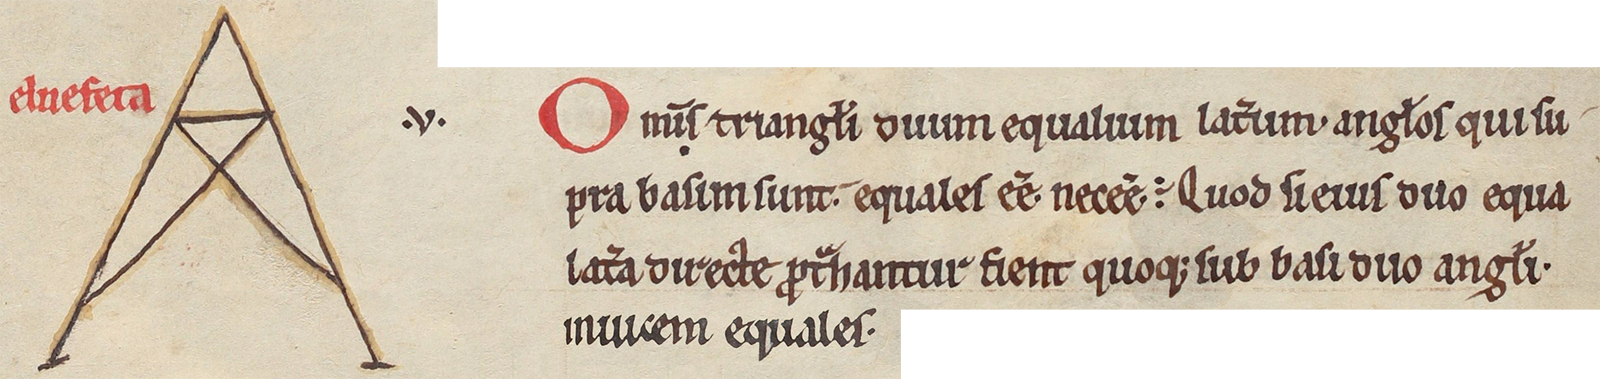 elnefeca
.v.
Omīs trianglꝉi duum equalium lat̄um. anglꝉos qui su
pra basim sunt. equales eē necēē: Quod si eius duo equa
lat̄a directe ꝓt͛hantur fient quoq; sub basi duo anglꝉi.
inuicem equales.